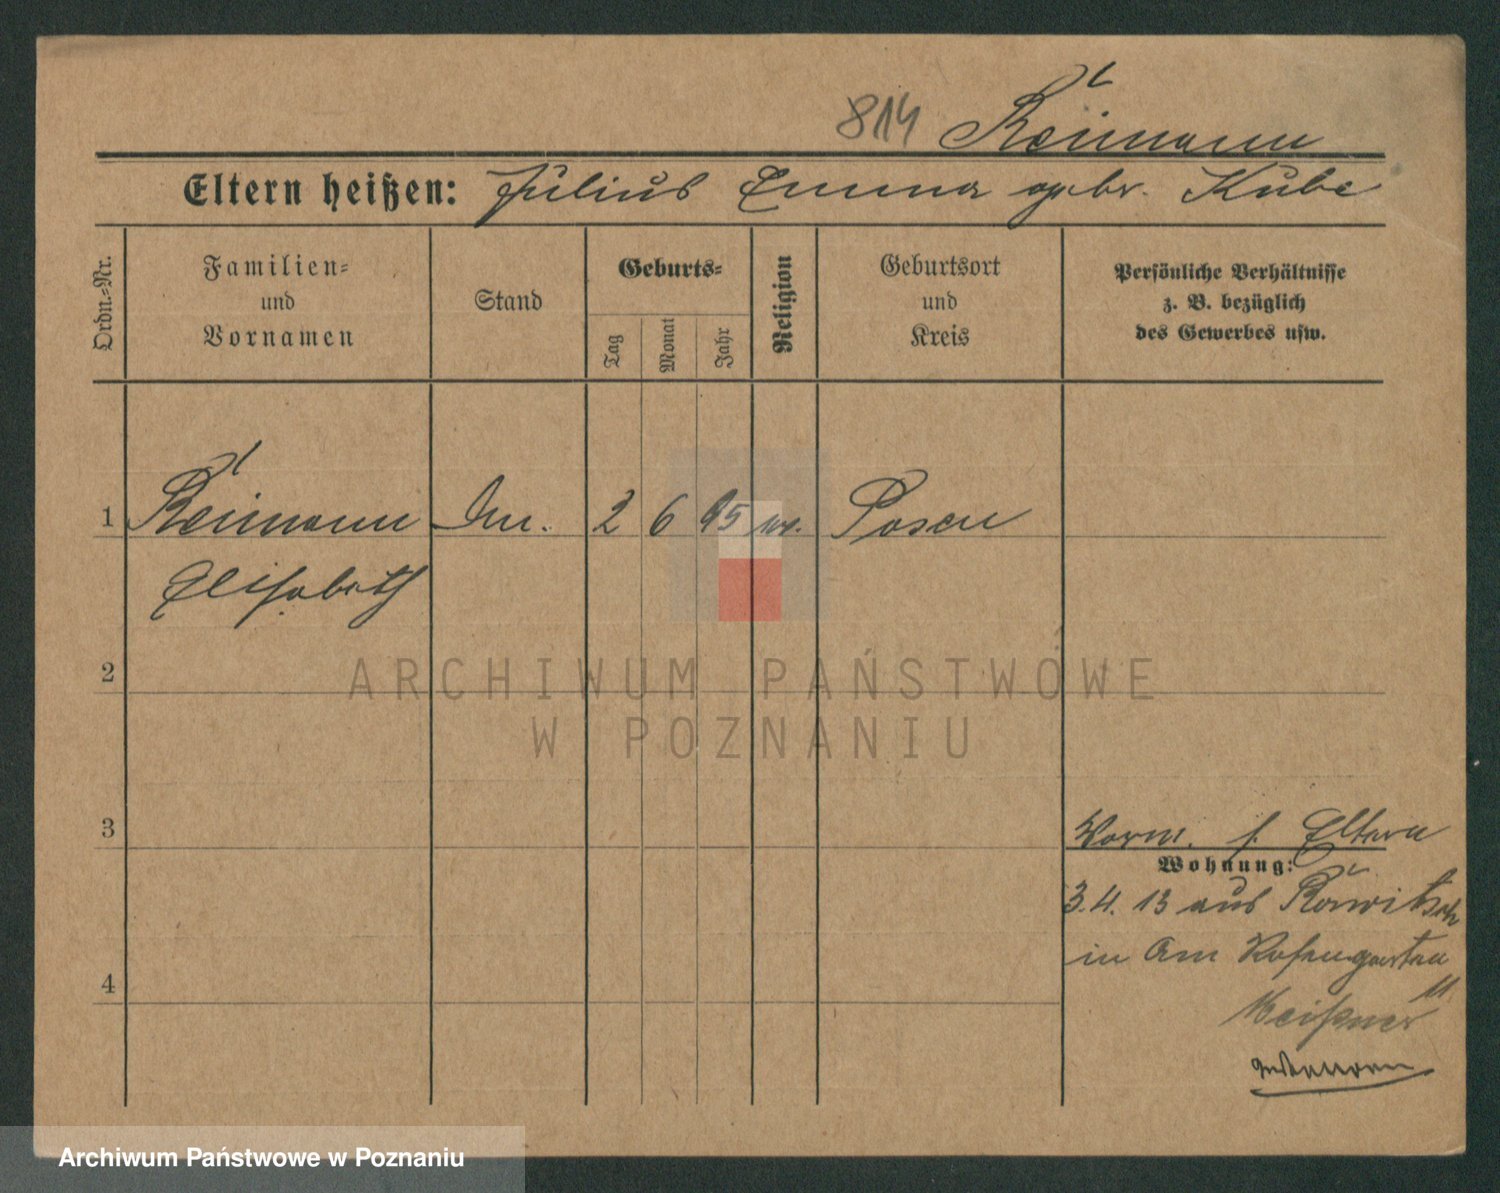 814 Reimann
Eltern heißen: Julius Emma gebr. Kube
Ordn.-Nr.
Familien-
und
Vornamen
Stand
Geburts-
Tag
Monat
Jahr
Religion
Geburtsort
und
Kreis
Persönliche Verhältnisse
z. B. bezüglich
des Gewerbes usw.
1 Reimann 2 6 95 Posen
Elisabeth
2
3
4
Vorm. s. Eltern
Wohnung:
3.4.13 aus
in Am Rosengarten
11
Meißner
ARCHIWUM PAŃSTWOWE
W POZNANIU
Archiwum Państwowe w Poznaniu